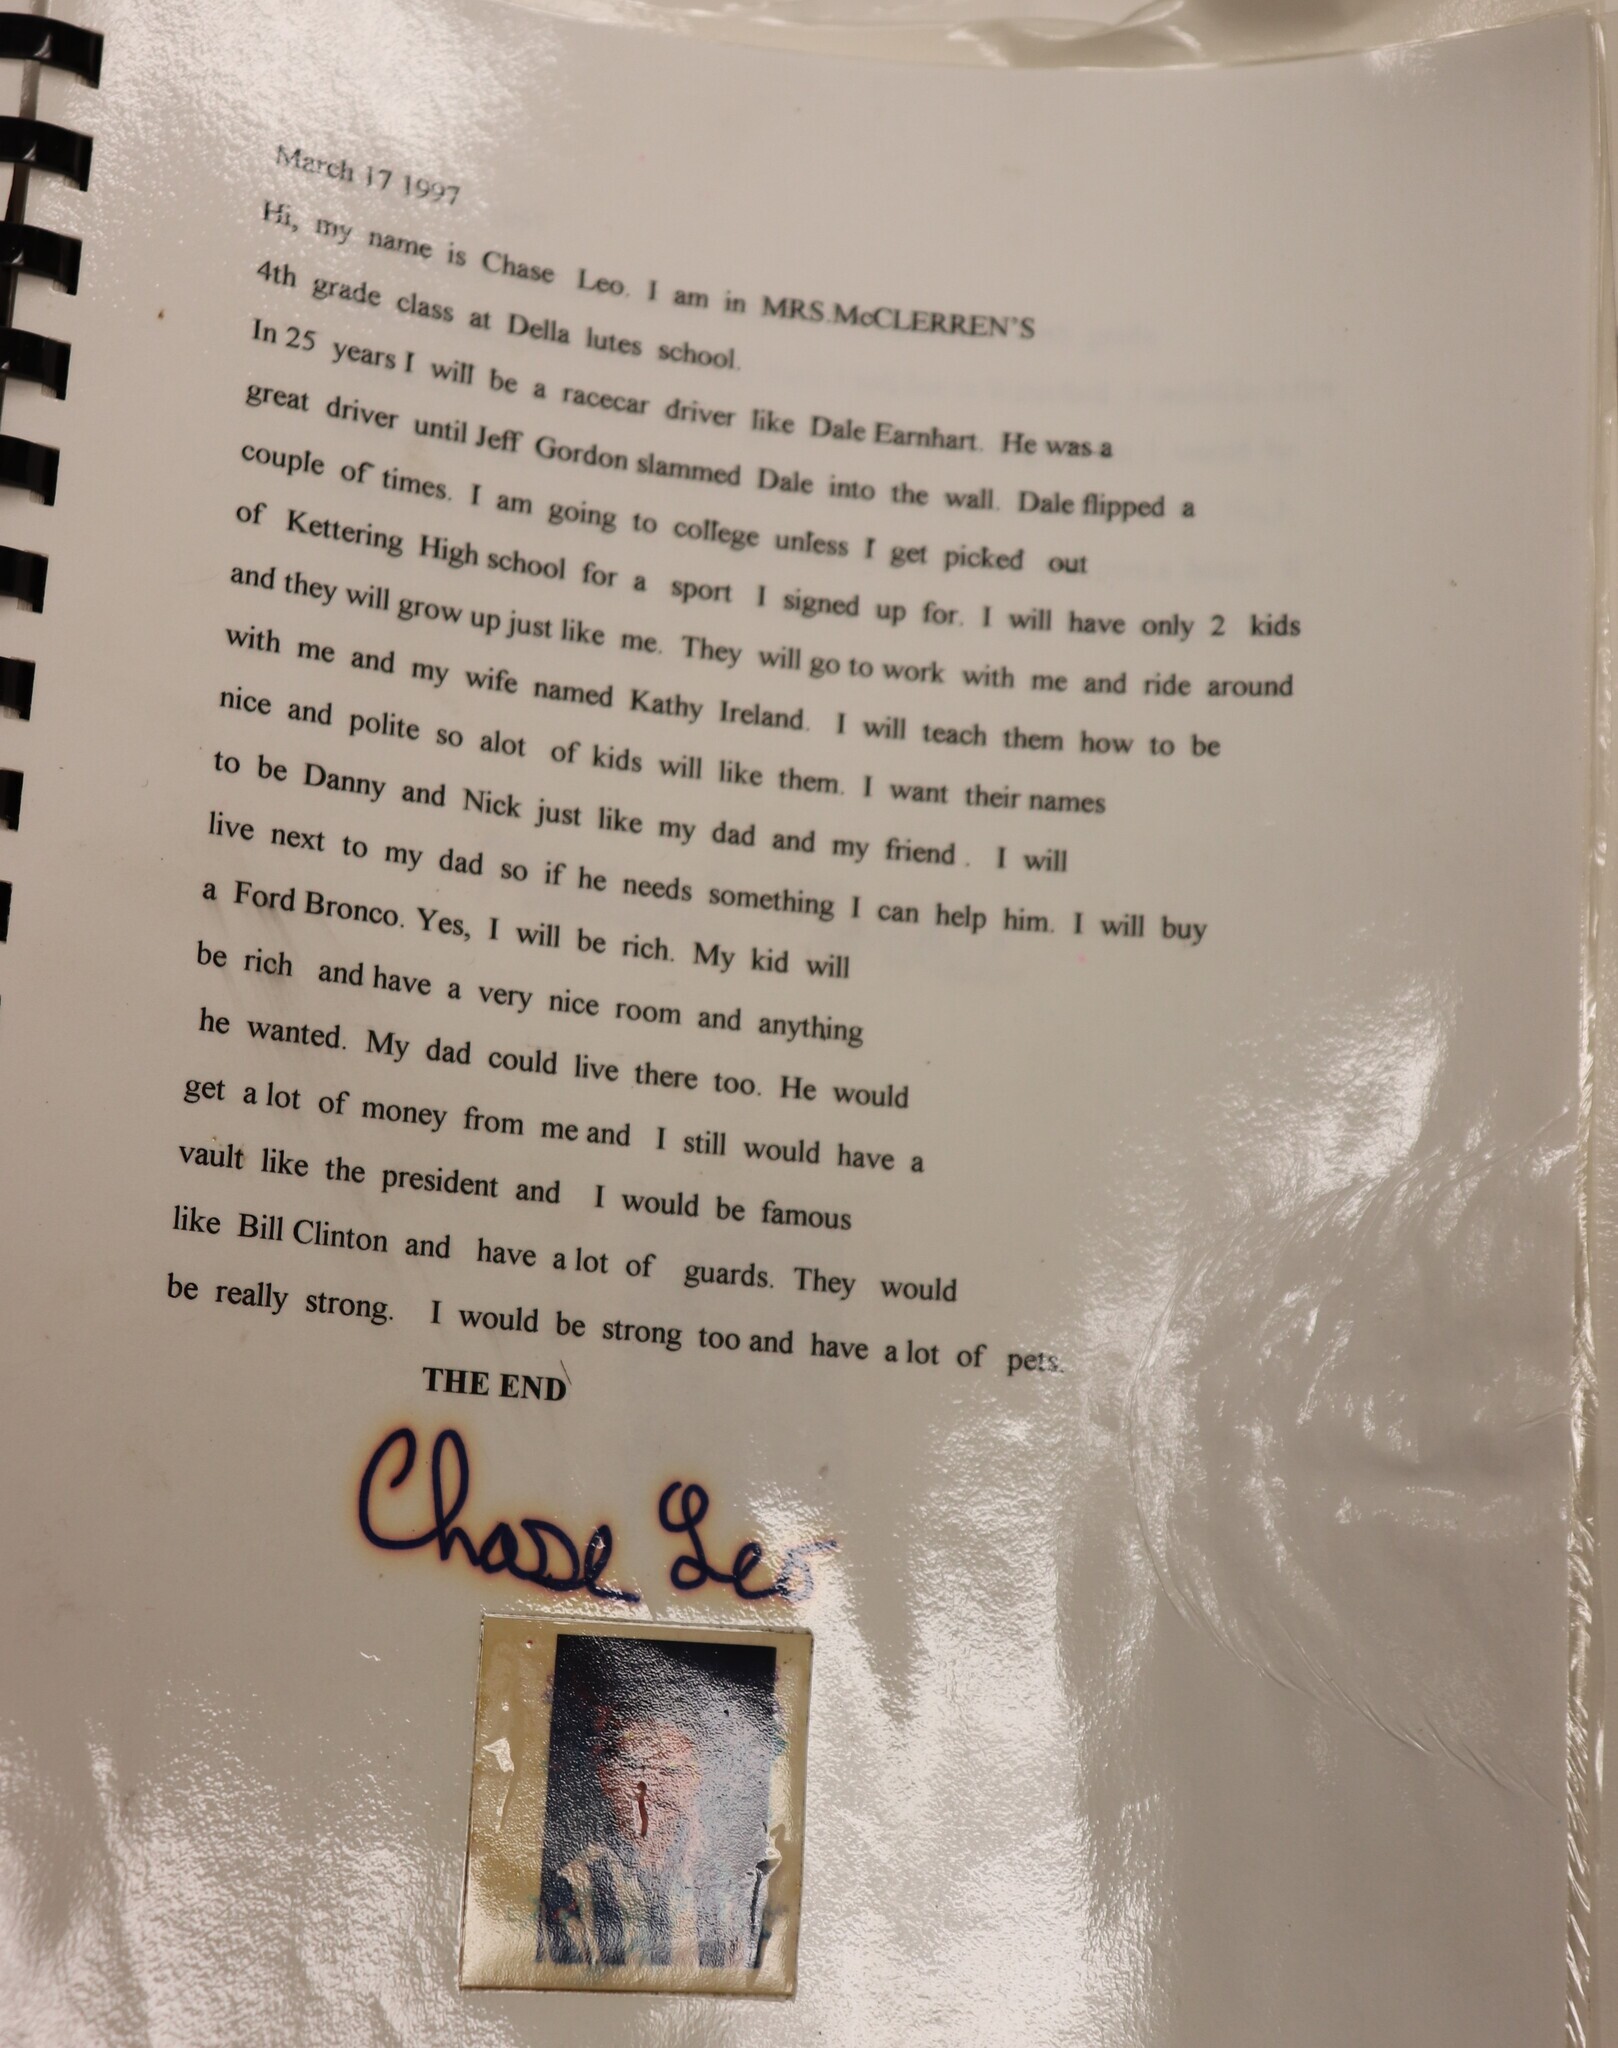 March 17 1997
Hi, my name is Chase Leo. I am in MRS.McCLERREN'S
4th grade class at Della lutes school.
In 25 years I will be a racecar driver like Dale Earnhart. He was a
great driver until Jeff Gordon slammed Dale into the wall. Dale flipped a
couple of times. I am going to college unless I get picked out
of Kettering High school for a sport I signed up for. I will have only 2 kids
and they will grow up just like me. They will go to work with me and ride around
with me and my wife named Kathy Ireland. I will teach them how to be
nice and polite so alot of kids will like them. I want their names
to be Danny and Nick just like my dad and my friend. I will
live next to my dad so if he needs something I can help him. I will buy
a Ford Bronco. Yes, I will be rich. My kid will
be rich and have a very nice room and anything
he wanted. My dad could live there too. He would
get a lot of money from me and I still would have a
vault like the president and I would be famous
like Bill Clinton and have a lot of guards. They would
be really strong. I would be strong too and have a lot of pets.
THE END
Chase Leo